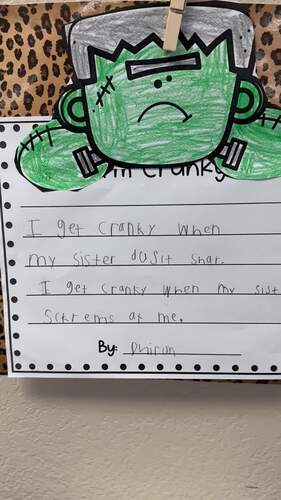 m Cranky
I get cranky when
my sister dusit shar.
I get cranky when my sist
Sckrems at me.
By: Dhirun